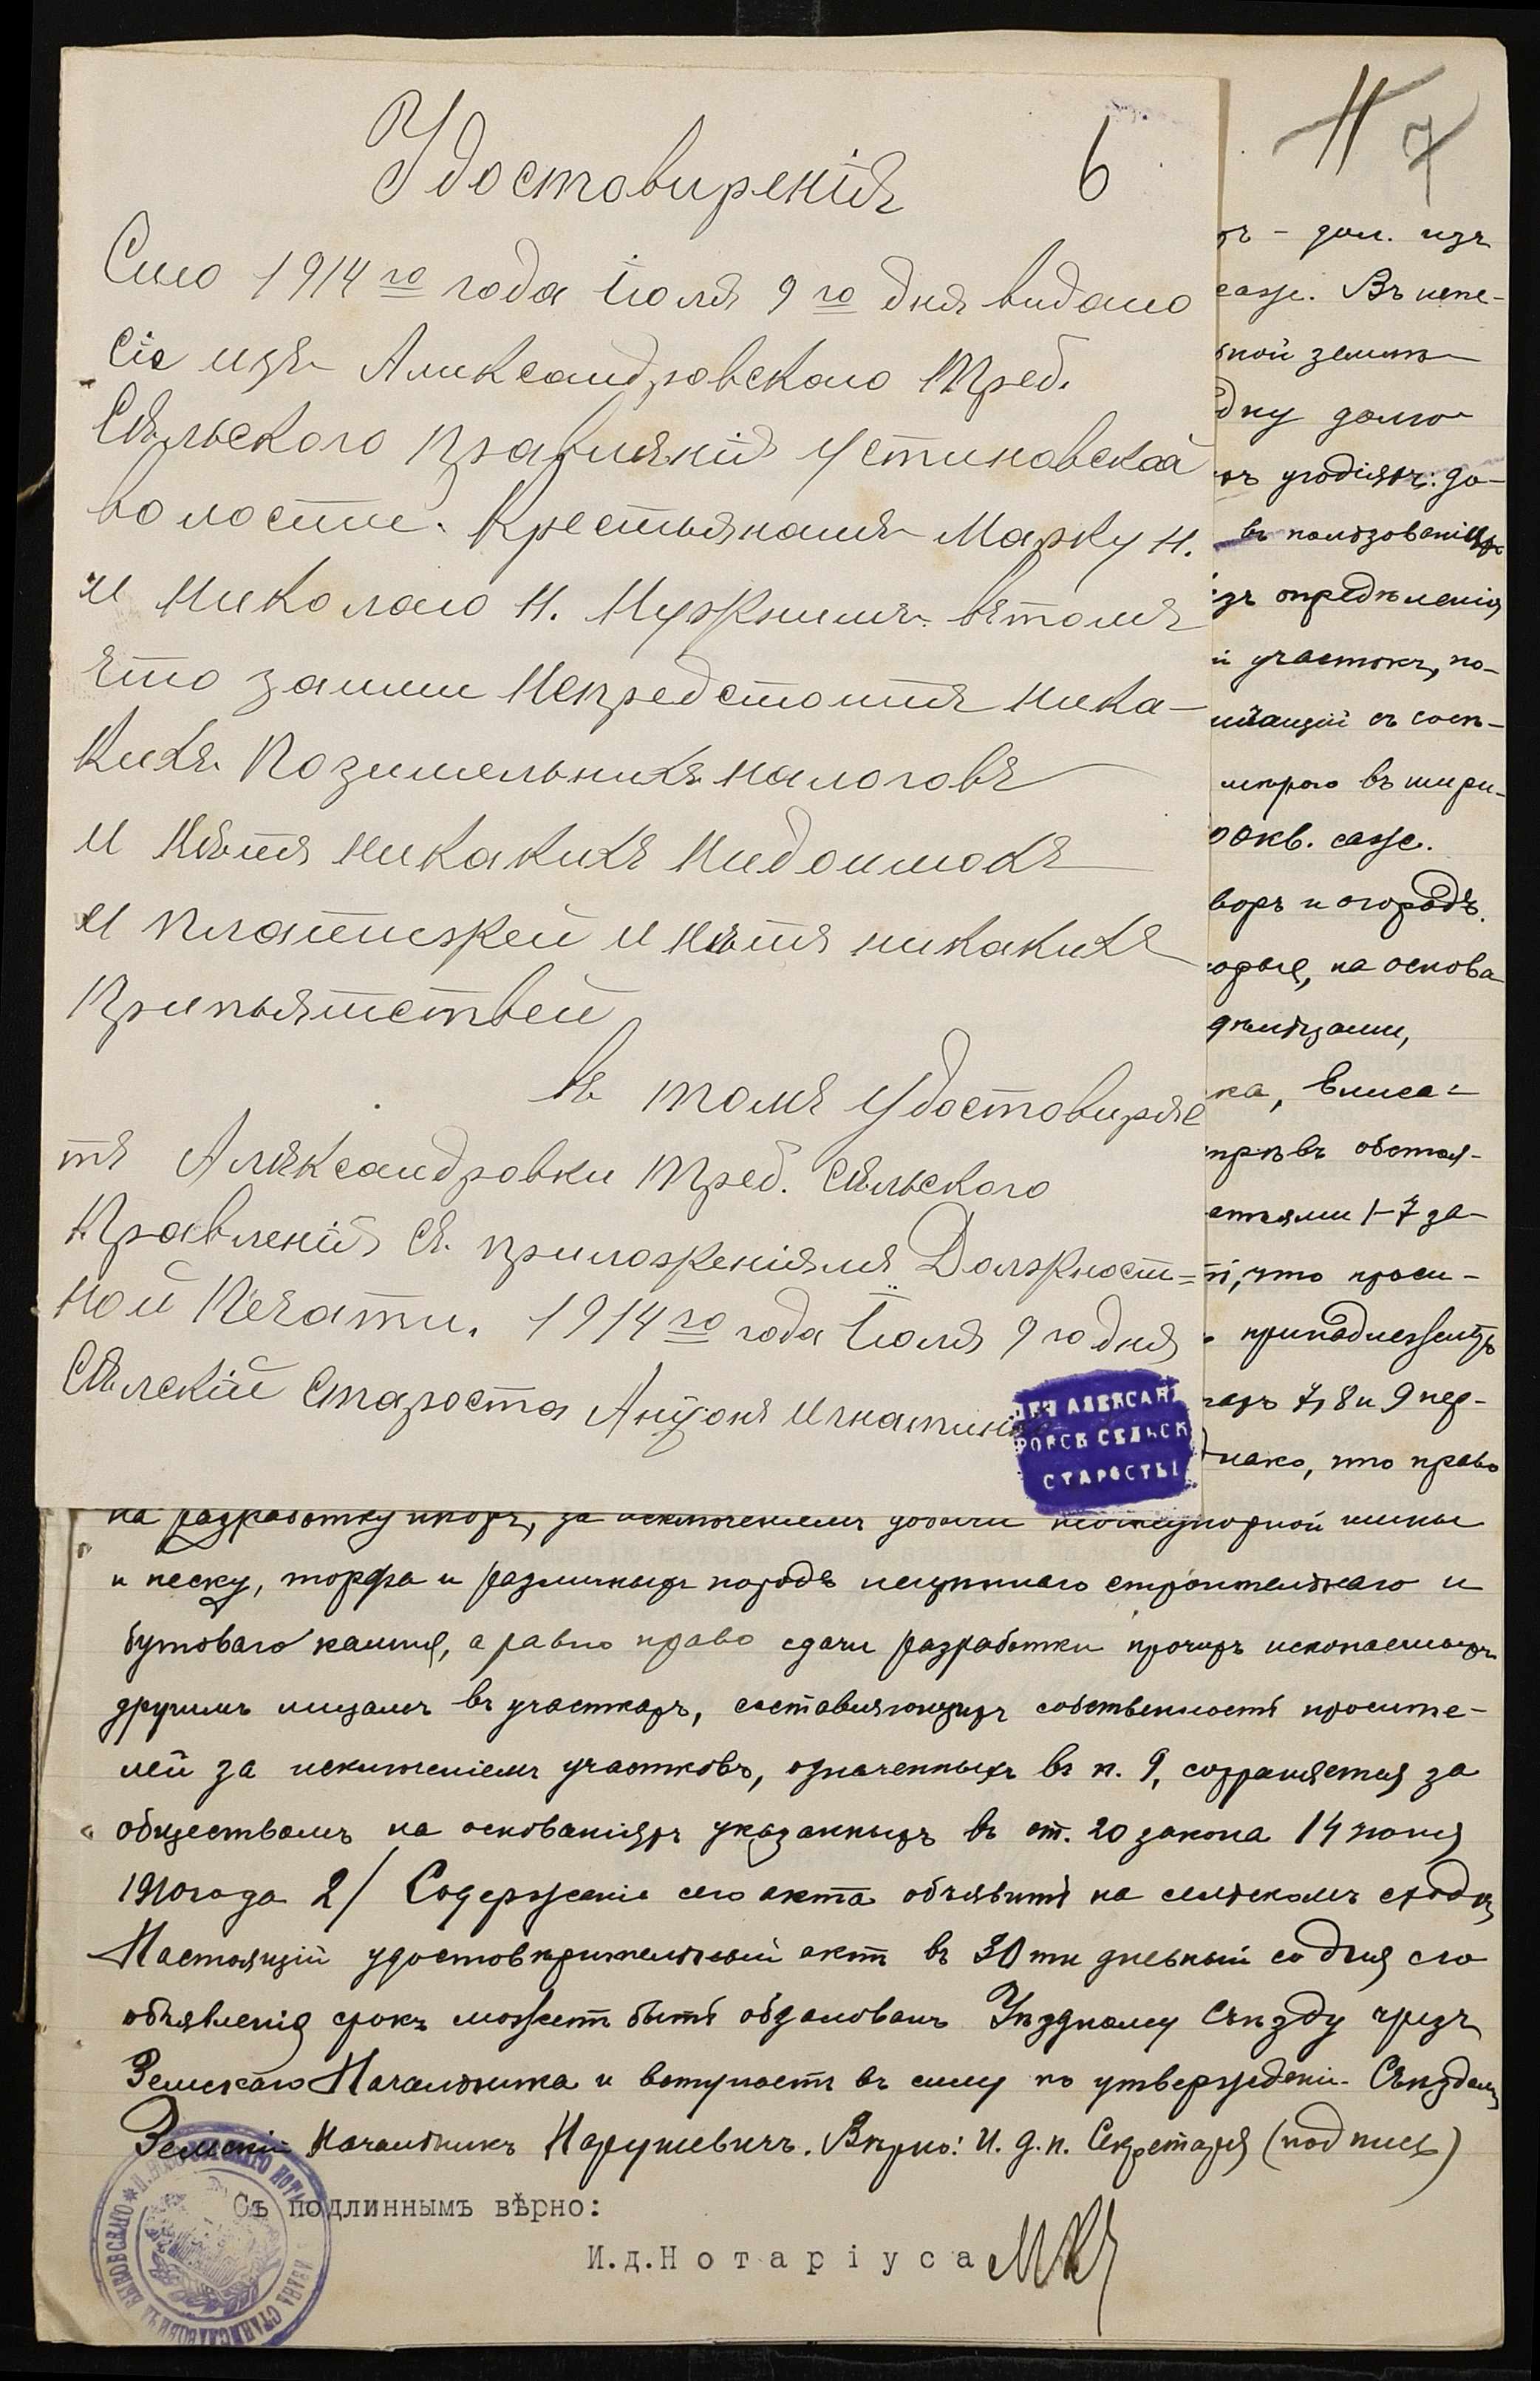 Удостовиренія
6
Сего 1914 го года Іюля 9 го дня видано
Сіе изъ Александровскаго Тред.
Сѣльского правленія Устиновской
волости. Крестьянамъ Марку Н.
и Николаю Н. вътомъ
ято заими Непредстоитя ника-
кихъ Позимельнихъ налоговъ
и Нѣтя никакихъ Нидоимокъ
и платижей и нѣтя никакихъ
Припьятствей
въ томъ удостовиряе
тъ Аляксандровки Тред. Сѣльского
Правленія съ приложеніямя Должност=
ной Печати. 1914 го года Іюля 9 го дня
Сѣлскій Староста Антонъ
АЛЕКСАН
РОВСК СЕЛЬСК
СТАРОСТЫ
7
дол. изъ
саж. Въ непе-
ной земли
дну долю
угодіяхъ: до-
въ пользованіи
опредѣленія
участокъ, по-
въ шири-
00 кв. саж.
воръ и огородъ.
на основа
ка, Елиса-
обстоя-
1-7 за-
что проси-
принадлежитъ
7, 8 и 9 пер-
что право
на разработку нѣдръ, за исключеніемъ добычи глины
и песку, торфа и различныхъ породъ строительнаго и
бутоваго камня, а равно право сдачи разработки прочихъ ископаемыхъ
другимъ лицамъ въ участкахъ, составляющихъ собственность просите-
лей за исключеніемъ участковъ, означенныхъ въ п. 9, сохраняется за
обществомъ на основаніяхъ указанныхъ въ ст. 20 закона 14 іюня
1910 года 2/ Содержаніе сего акта объявить на сельскомъ сходѣ
Настоящій удостовѣрительный актъ въ 30 ти дневный со дня его
объявленія срокъ можетъ быть обжалованъ Уѣздному Съѣзду чрезъ
Земскаго Начальника и вступаетъ въ силу по утвержденіи Съѣздомъ
Земскій Начальникъ Нарушевичъ. Вѣрно: И. д. п. Секретаря (подпись)
Съ подлиннымъ вѣрно:
И.д.Нотаріуса